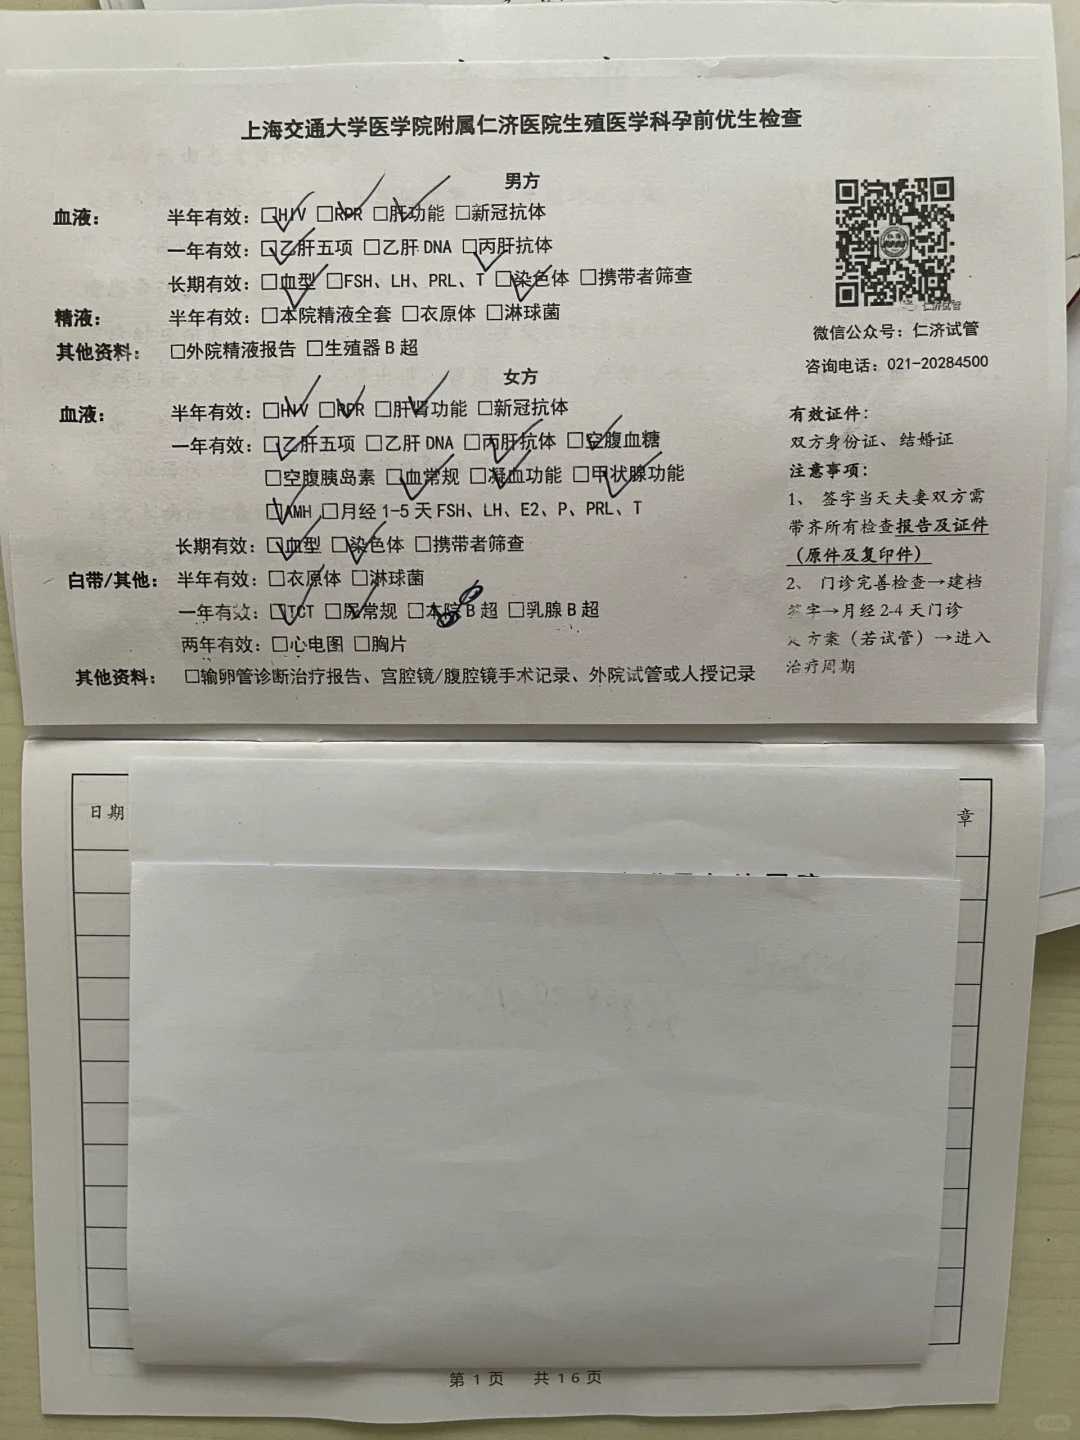 上海交通大学医学院附属仁济医院生殖医学科孕前优生检查
男方
血液： 半年有效：□HIV □RPR □肝功能 □新冠抗体
一年有效：□乙肝五项 □乙肝 DNA □丙肝抗体
长期有效：□血型 □FSH、LH、PRL、T □染色体 □携带者筛查
精液： 半年有效：□本院精液全套 □衣原体 □淋球菌
其他资料： □外院精液报告 □生殖器 B 超
女方
血液： 半年有效：□HIV □RPR □肝肾功能 □新冠抗体
一年有效：□乙肝五项 □乙肝 DNA □丙肝抗体 □空腹血糖
□空腹胰岛素 □血常规 □凝血功能 □甲状腺功能
□AMH □月经 1-5 天 FSH、LH、E2、P、PRL、T
长期有效：□血型 □染色体 □携带者筛查
白带/其他： 半年有效：□衣原体 □淋球菌
一年有效：□TCT □尿常规 □本院 B 超 □乳腺 B 超
两年有效：□心电图 □胸片
其他资料： □输卵管诊断治疗报告、宫腔镜/腹腔镜手术记录、外院试管或人授记录
仁济试管
微信公众号：仁济试管
咨询电话：021-20284500
有效证件：
双方身份证、结婚证
注意事项：
1、 签字当天夫妻双方需
带齐所有检查报告及证件
（原件及复印件）
2、 门诊完善检查→建档
签字→月经 2-4 天门诊
定方案（若试管）→进入
治疗周期
日期
章
第 1 页 共 16 页